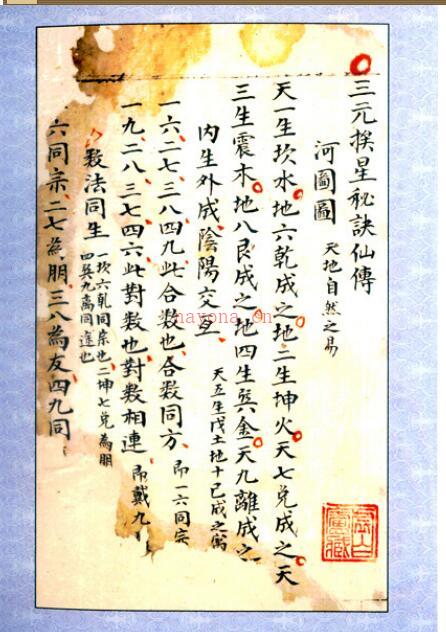 三元挨星秘訣仙傳
河圖圖 天地自然之易
天一生坎水地六乾成之地二生坤火天七兌成之天
三生震木地八艮成之地四生巽金天九離成之
內生外成陰陽交互 天五生戊土地十己成之
一六二七三八四九此合數也合數同方 即一六同宗
一九二八三七四六此對數也對數相連 即戴九
教法同生 一坎六乾同宗也二坤七兌為朋
四巽九離同
六同宗二七為朋三八為友四九同
nayona.cn